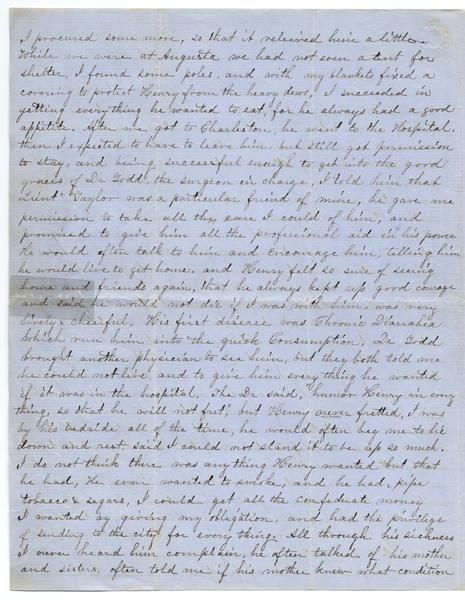 I procured some more, so that it releived him a little.
While we were at Augusta we had not even a tent for
shelter, I found some poles, and with my blankets fixed a
covering to protect Henry from the heavy dews, I succeeded in
getting everything he wanted to eat, for he always had a good
appetite. After we got to Charleston, he went to the Hospital.
then I expected to have to leave him. but still got permission
to stay, and being successful enough to get into the good
graces of Dr Todd, the surgeon in charge, I told him that
Lieut Taylor was a particular friend of mine, he gave me
permission to take all the care I could of him, and
promised to give him all the proffesional aid in his power
He would often talk to him and encourage him, telling him
he would live to get home. and Henry felt so sure of seeing
home and friends again, that he always kept up good courage
and said he would not die if I was with him, was very
lively & cheerful, His first disease was Chronic Diarrahea
Which run him into the quick Consumption, Dr Todd
brought another physician to see him, but they both told me
he could not live, and to give him everything he wanted
if it was in the hospital, The Dr said, "humor Henry in every
thing, so that he will not fret," but Henry never fretted, I was
by his bedside all of the time, he would often beg me to lie
down and rest, said I could not stand it to be up so much.
I do not think there was anything Henry wanted but what
he had, He even wanted to smoke, and he had, pipe
tobacco & segars, I could get all the confederate money
I wanted by giving my obligation, and had the privilege
of sending to the city for every thing. All through his sickness
I never heard him complain, he often talked of his mother
and sisters, often told me if his mother knew what condition